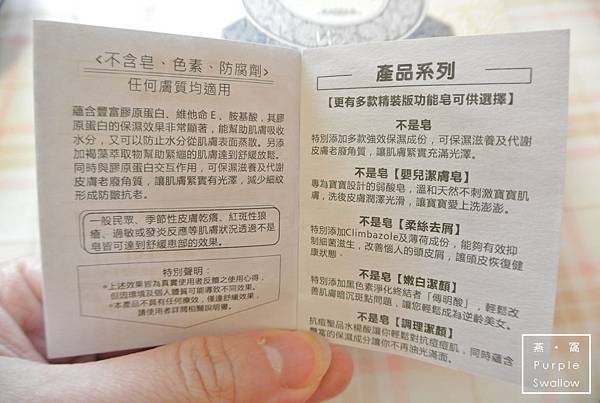 <不含皂、色素、防腐劑>
任何膚質均適用
蘊含豐富膠原蛋白、維他命E、胺基酸，其膠
原蛋白的保濕效果非常顯著，能幫助肌膚吸收
水分，又可以防止水分從肌膚表面蒸散。另添
加褐藻萃取物幫助緊繃的肌膚達到舒緩放鬆。
同時與膠原蛋白交互作用，可保濕滋養及代謝
皮膚老廢角質，讓肌膚緊實有光澤，減少細紋
形成防皺抗老。
一般民眾、季節性皮膚乾癢、紅斑性狼
瘡、過敏或發炎反應等肌膚狀況透過不是
皂皆可達到舒緩患部的效果。
特別聲明：
•上述效果皆為真實使用者反饋之使用心得，
但因環境及個人體質可能導致不同效果。
•本產品不具有任何療效，僅達舒緩效果，
請使用者詳閱相關說明書。
產品系列
【更有多款精裝版功能皂可供選擇】
不是皂
特別添加多款強效保濕成份，可保濕滋養及代謝
皮膚老廢角質，讓肌膚緊實充滿光澤。
不是皂【嬰兒潔膚皂】
專為寶寶設計的弱酸皂，溫和天然不刺激寶寶肌
膚，洗後皮膚潤澤光滑，讓寶寶愛上洗澎澎。
不是皂【柔絲去屑】
特別添加Climbazole及薄荷成份，能夠有效抑
制細菌滋生，改善惱人的頭皮屑，讓頭皮恢復健
康狀態。
不是皂【嫩白潔顏】
特別添加黑色素淨化終結者「傳明酸」，輕鬆改
善肌膚暗沉斑點問題，讓您輕鬆成為逆齡美女。
不是皂【調理潔顏】
抗痘聖品水楊酸讓你輕鬆對抗痘痘肌，同時蘊含
豐富的保濕成分讓你不再油光滿面。
燕•窩
Purple
Swallow